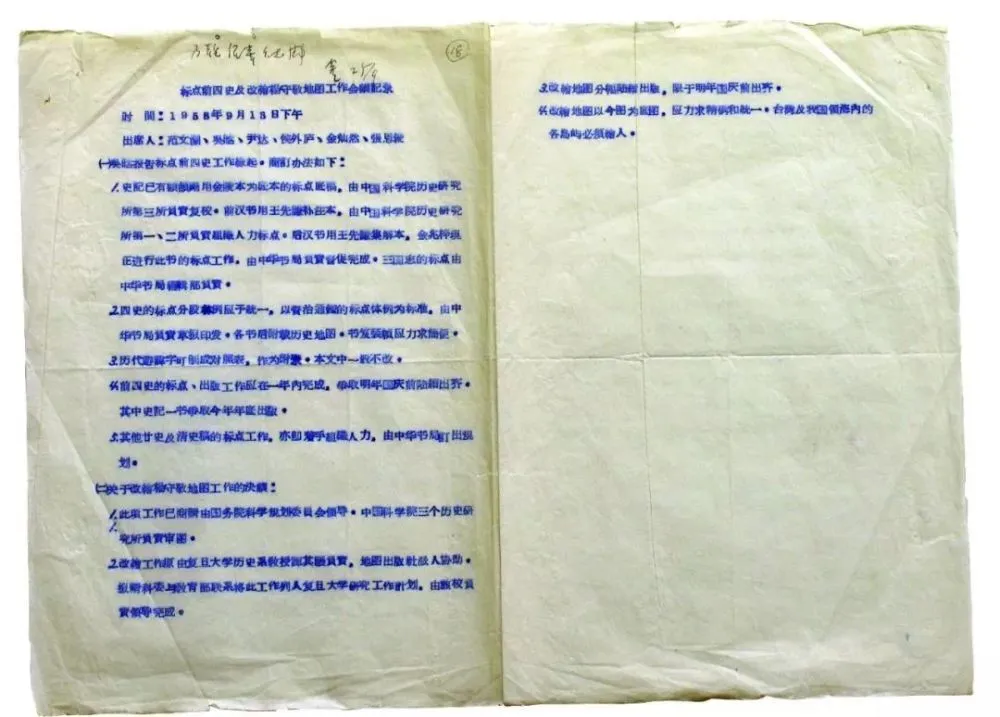 18
标点前四史及改绘杨守敬地图工作会议记录
时 间：1958年9月13日下午
出席人：范文澜、吴晗、尹达、侯外庐、金灿然、张思俊
㈠吴晗报告标点前四史工作缘起。商订办法如下：
1.史记已有顾颉刚用金陵本为底本的标点底稿，由中国科学院历史研究
所第三所負責复校。前汉书用王先謙补注本，由中国科学院历史研究
所第一、二所負責組織人力标点。后汉书用王先謙集解本，金兆梓現
正进行此书的标点工作，由中华书局負責督促完成。三国志的标点由
中华书局編輯部負責。
2.四史的标点分段体例应予統一，以資治通鑑的标点体例为标准，由中
华书局負責草拟印发。各书后附載历史地图。书发裝幀应力求簡便。
3.历代避諱字可制成对照表，作为附錄。本文中一般不改。
4.前四史的标点、出版工作应在一年內完成，爭取明年国庆前陆續出齐。
其中史記一书爭取今年年底出版。
5.其他廿史及清史稿的标点工作，亦即着手組織人力，由中华书局訂出規
划。
㈡关于改繪楊守敬地图工作的决議：
1.此項工作已商請由国务院科学規划委員会領导。中国科学院三个历史研
究所負責审图。
2.改繪工作原由复旦大学历史系教授譚其驤負責，地图出版社派人协助。
拟請科委与教育部联系将此工作列入复旦大学研究工作計划，由該校負
責領导完成。
3.改繪地图分幅陆續出版，限于明年国庆前出齐。
4.改繪地图以今图为底图，应力求精确和統一。台湾及我国領海內的
各島屿必須繪入。